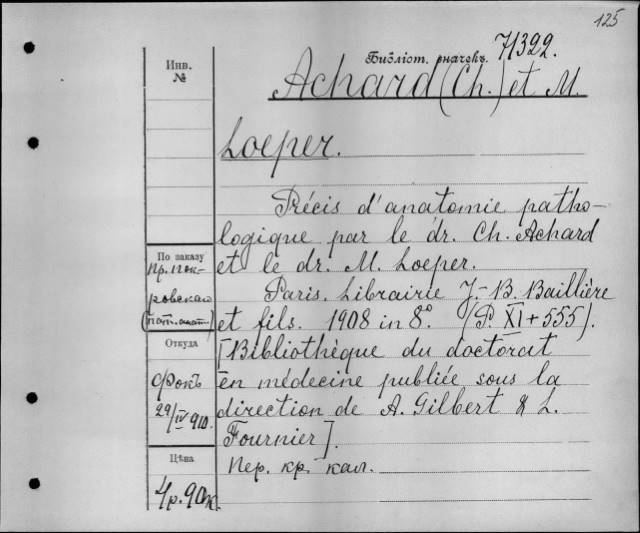 125
Библіот. значекъ. 7/322.
Инв.
№
Achard (Ch.) et M.
Loeper.
Précis d'anatomie patho-
logique par le dr. Ch. Achard
et le dr. M. Loeper.
Paris. Librairie J.-B. Baillière
et fils. 1908 in 8°. (P. XI + 555).
[Bibliothèque du doctorat
en médecine publiée sous la
direction de A. Gilbert & L.
Fournier].
Пер. кр. кал.
По заказу
пр. Пок-
ровскаго
(пат. анат.)
Откуда
Фокъ
29/IV 910.
Цѣна
4 р. 90 к.